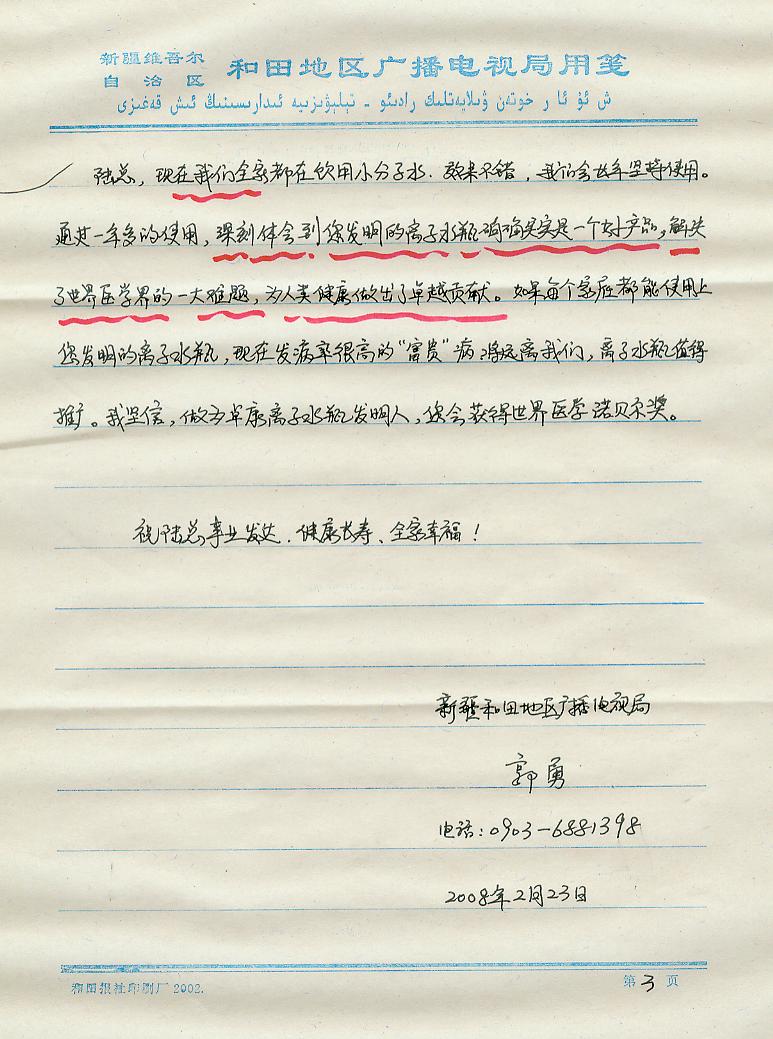 新疆维吾尔
自治区
和田地区广播电视局用笺
ش ئۇ ئا ر خوتەن ۋىلايەتلىك رادىئو - تېلېۋىزىيە ئىدارىسىنىڭ ئىش قەغىزى
陆总，现在我们全家都在饮用小分子水．效果不错，我们会长年坚持使用。
通过一年多的使用，深刻体会到您发明的离子水瓶确确实实是一个好产品，解决
了世界医学界的一大难题，为人类健康做出了卓越贡献。如果每个家庭都能使用上
您发明的离子水瓶，现在发病率很高的“富贵”病将远离我们，离子水瓶值得
推广。我坚信，做为卓康离子水瓶发明人，您会获得世界医学诺贝尔奖。
祝陆总事业发达．健康长寿、全家幸福！
新疆和田地区广播电视局
郭勇
电话：0903-6881398
2008年2月23日
和田报社印刷厂 2002.
第 3 页